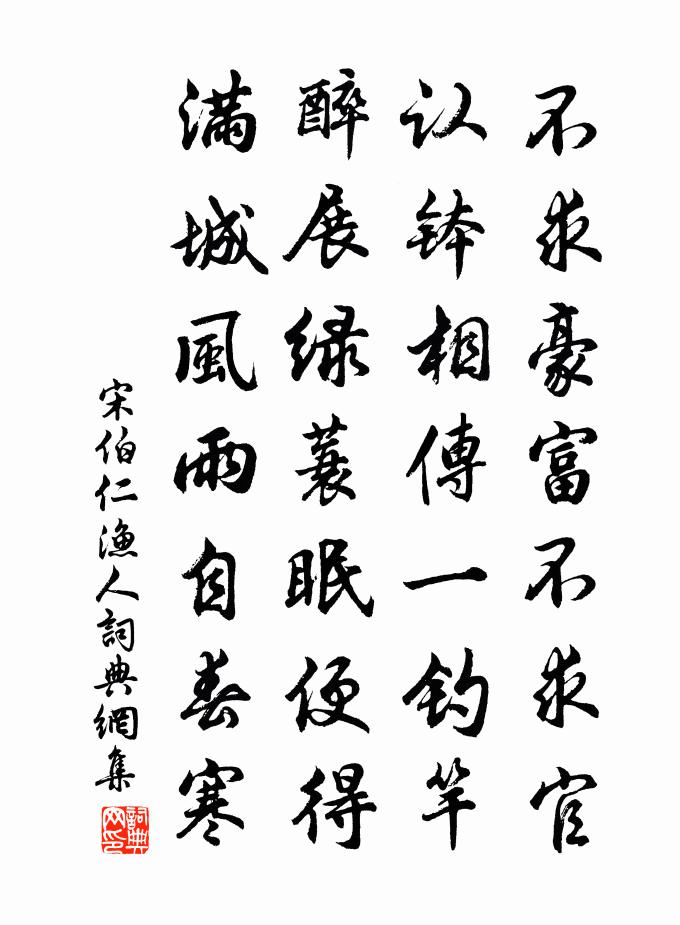 不求豪富不求官
认鉢相傳一釣竿
醉展緑蓑眠便得
滿城風雨自春寒
宋伯仁漁人詞典網集
詞典网印